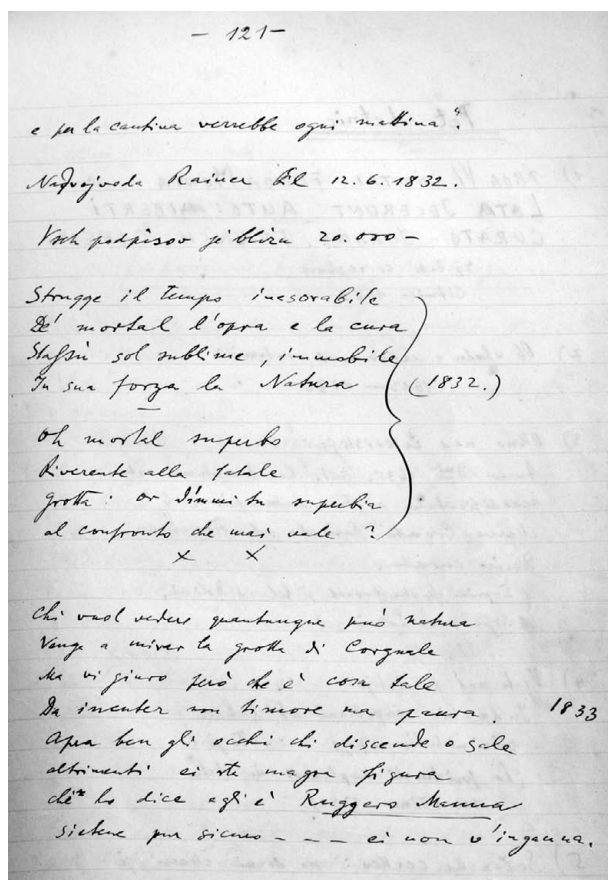 - 121 -
e per la cantina verrebbe ogni mattina".
Nadvojvoda Rainer bil 12. 6. 1832.
Vseh podpisov je blizu 20.000 -
Strugge il tempo inesorabile
De' mortal l'opra e la cura
Stassù sol sublime, immobile
In sua forza la Natura
(1832.)
Oh mortal superbo
Riverente alla fatale
grotta: or dimmi tu superbia
al confronto che mai vale?
x x
Chi vuol vedere quantunque può natura
Venga a mirar la grotta di Corgnale
Ma vi giuro però che è cosa tale
Da incuter non timore ma paura
1833
Apra ben gli occhi chi discende o sale
altrimenti ei sta magra figura
chè lo dice egli è Ruggero Manna
sietene pur sicuri - - - ei non v'inganna.